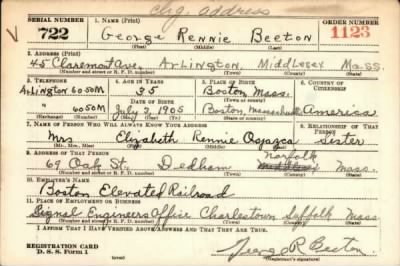 chg. address
SERIAL NUMBER 1. NAME (Print) ORDER NUMBER
722 George Rennie Beeton 1123
(First) (Middle) (Last)
2. ADDRESS (Print)
45 Claremont Ave. Arlington, Middlesex Mass.
(Number and street or R. F. D. number) (Town) (County) (State)
3. TELEPHONE 4. AGE IN YEARS 5. PLACE OF BIRTH 6. COUNTRY OF CITIZENSHIP
Arlington 6050M 35 Boston, Mass.
DATE OF BIRTH (Town or county)
" 6050M July 2, 1905 Boston, Massachusetts America
(Exchange) (Number) (Mo.) (Day) (Yr.) (State or country)
7. NAME OF PERSON WHO WILL ALWAYS KNOW YOUR ADDRESS 8. RELATIONSHIP OF THAT PERSON
Mrs Elizabeth Rennie Sister
(Mr., Mrs., Miss) (First) (Middle) (Last)
9. ADDRESS OF THAT PERSON
Norfolk
69 Oak St. Dedham Mass.
(Number and street or R. F. D. number) (Town) (County) (State)
10. EMPLOYER'S NAME
Boston Elevated Railroad
11. PLACE OF EMPLOYMENT OR BUSINESS
Signal Engineers Office Charlestown Suffolk Mass
(Number and street or R. F. D. number) (Town) (County) (State)
I AFFIRM THAT I HAVE VERIFIED ABOVE ANSWERS AND THAT THEY ARE TRUE.
REGISTRATION CARD
D. S. S. Form 1 George R. Beeton
(Registrant's signature)